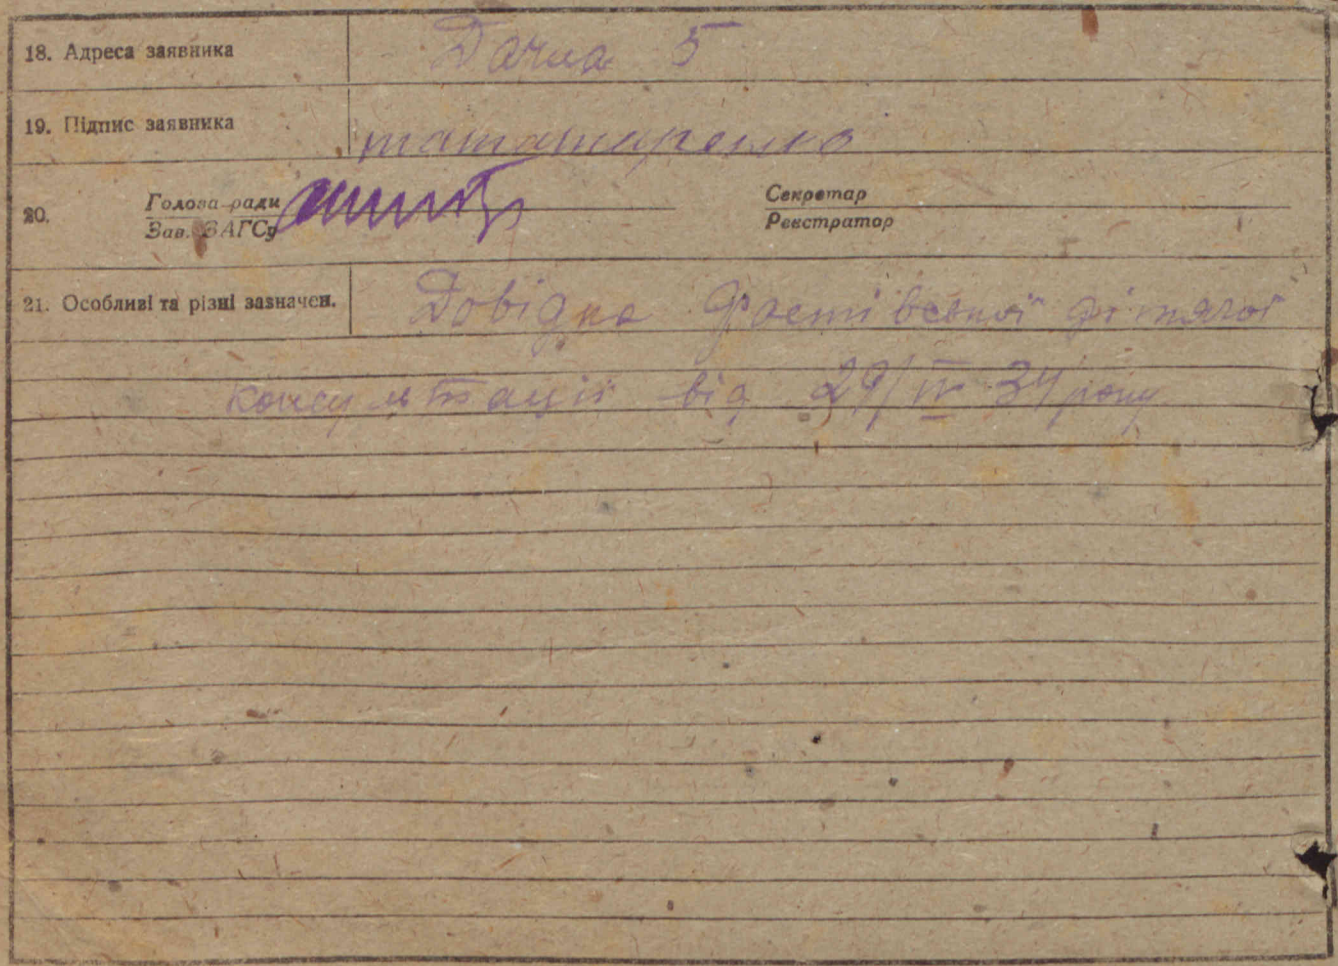 18. Адреса заявника Дачна 5
19. Підпис заявника
20. Голова ради Секретар
Зав. ЗАГСу Реєстратор
21. Особливі та різні зазначен. Довідка Фастівської дітячої
консультації від 29/IV 34 року